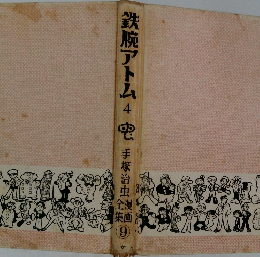 鉄腕アトム
4
虫
手塚治虫
漫画全集
9